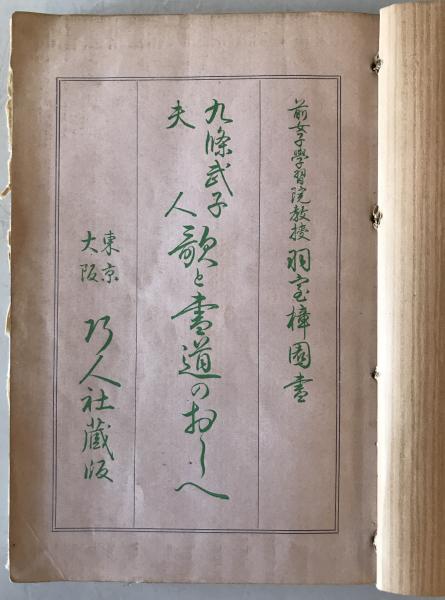 前女子學習院教授 羽室樟園書
九條武子夫人 歌と書道のおしへ
東京 大阪 巧人社蔵版